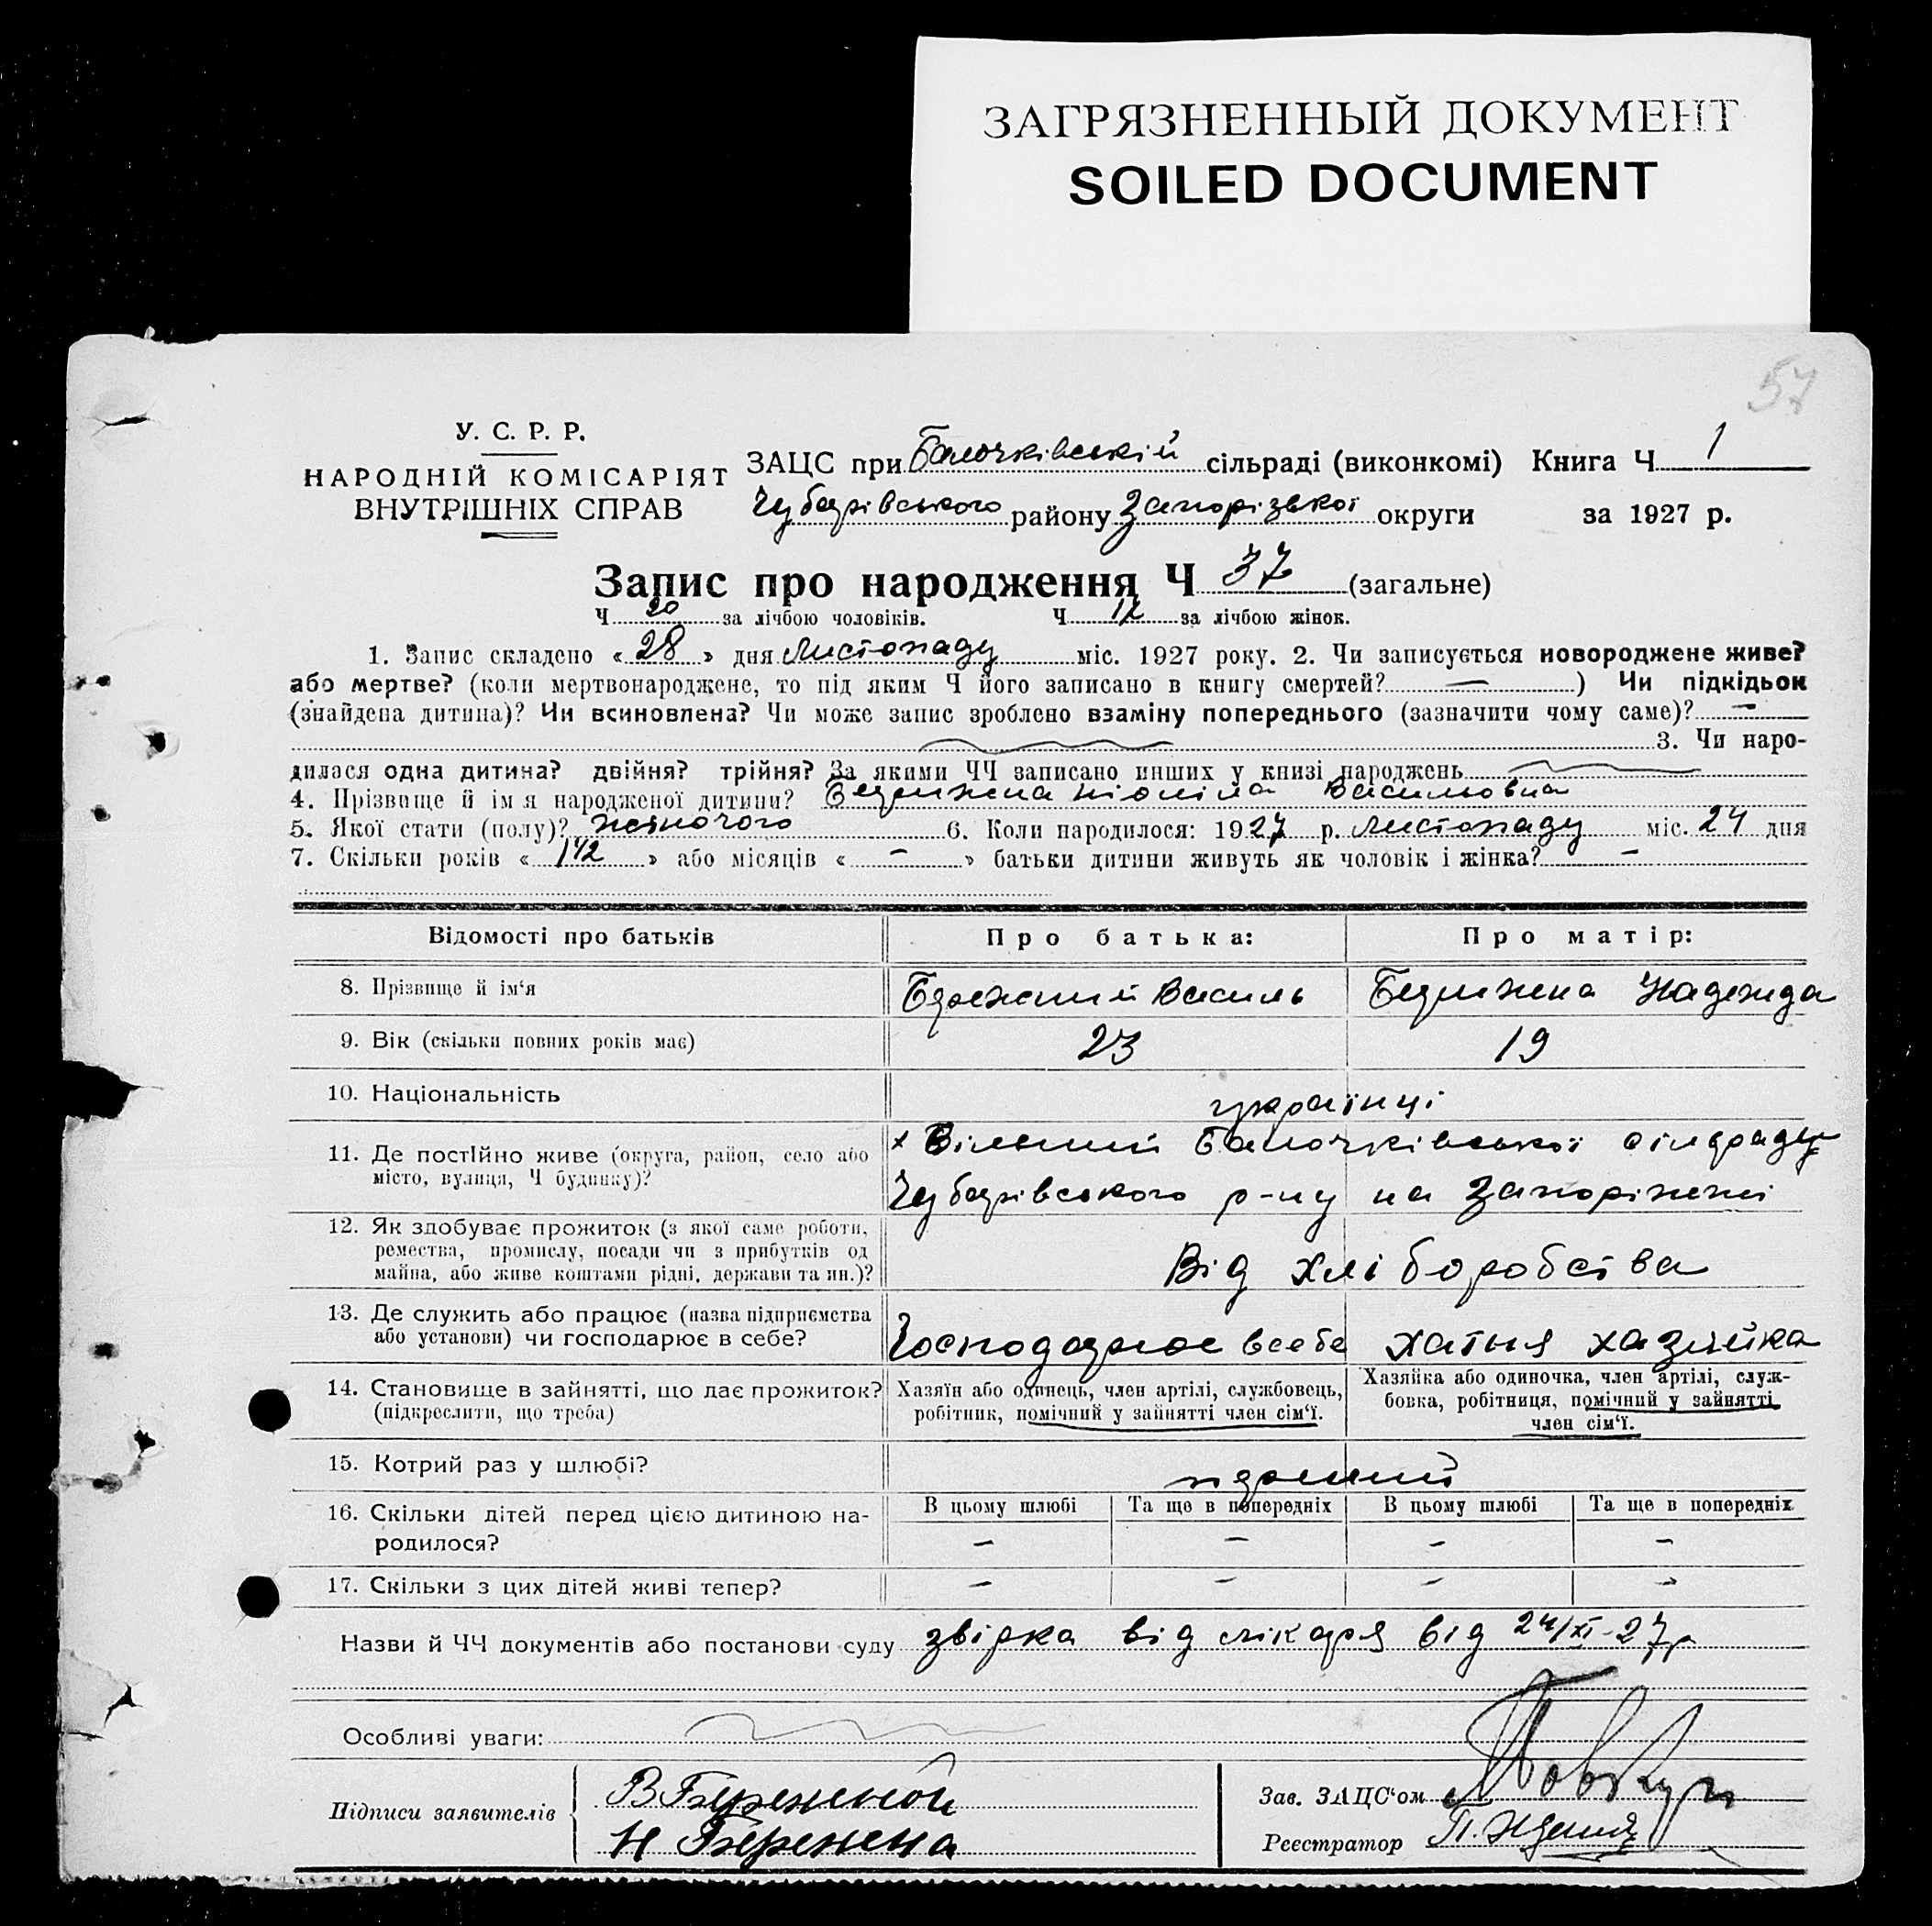 ЗАГРЯЗНЕННЫЙ ДОКУМЕНТ
SOILED DOCUMENT
57
У. С. Р. Р.
НАРОДНІЙ КОМІСАРІЯТ
ВНУТРІШНІХ СПРАВ
ЗАЦС при Балочківській сільраді (виконкомі) Книга Ч 1
Чубарівського району Запорізької округи за 1927 р.
Запис про народження Ч 37 (загальне)
Ч 20 за лічбою чоловіків. Ч за лічбою жінок.
1. Запис складено « 28 » дня Листопаду міс. 1927 року. 2. Чи записується новороджене живе?
або мертве? (коли мертвонароджене, то під яким Ч його записано в книгу смертей? — ) Чи підкідьок
(знайдена дитина)? Чи всиновлена? Чи може запис зроблено взаміну попереднього (зазначити чому саме)? —
3. Чи наро-
дилася одна дитина? двійня? трійня? За якими ЧЧ записано инших у книзі народжень
4. Прізвище й ім я народженої дитини? Васильовна
5. Якої стати (полу)? жіночого 6. Коли народилося: 1927 р. Листопаду міс. 24 дня
7. Скільки років « 1 1/2 » або місяців « – » батьки дитини живуть як чоловік і жінка? –
Відомості про батьків Про батька: Про матір:
8. Прізвище й ім'я Василь Надежда
9. Вік (скільки повних років має) 23 19
10. Національність українці
11. Де постійно живе (округа, район, село або
місто, вулиця, Ч будинку)?
х Вільний Балочківської сільради
Чубарівського р-ну на Запоріжжі
12. Як здобуває прожиток (з якої саме роботи,
ремества, промислу, посади чи з прибутків од
майна, або живе коштами рідні, держави та ин.)?
Від хліборобства
13. Де служить або працює (назва підприємства
або установи) чи господарює в себе?
Господарює всебе хатня хазяйка
14. Становище в зайнятті, що дає прожиток?
(підкреслити, що треба)
Хазяїн або одинець, член артілі, службовець,
робітник, помічний у зайнятті член сім'ї.
Хазяйка або одиночка, член артілі, служ-
бовка, робітниця, помічний у зайнятті
член сім'ї.
15. Котрий раз у шлюбі?
16. Скільки дітей перед цією дитиною на-
родилося?
В цьому шлюбі Та ще в попередніх В цьому шлюбі Та ще в попередніх
– – – –
17. Скільки з цих дітей живі тепер? – – – –
Назви й ЧЧ документів або постанови суду звірка від лікаря від 24/XI-27р
Особливі уваги:
Підписи заявителів
В Бережной
Н Бережена
Зав. ЗАЦС'ом
Реєстратор